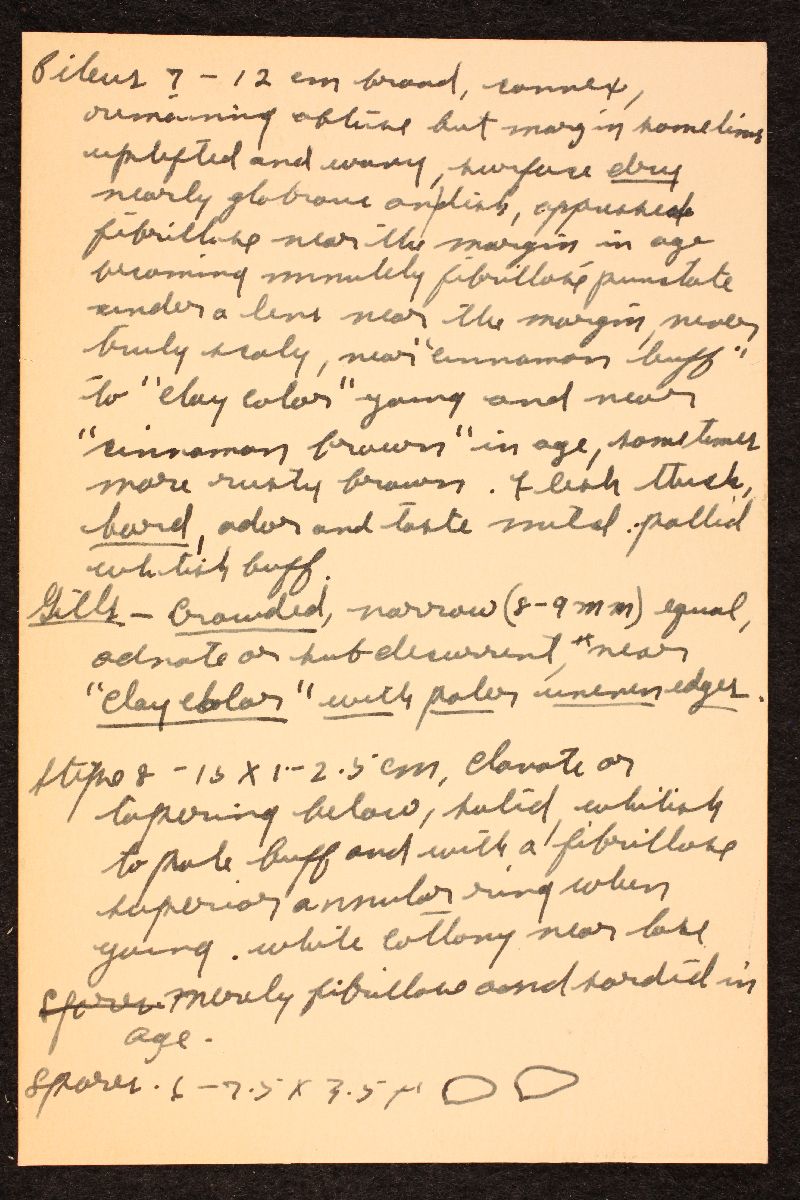 Pileus 7 - 12 cm broad, convex,
remaining obtuse but margin sometimes
uplifted and wavy, surface dry
nearly glabrous on disk, appressed
fibrillose near the margin in age
becoming minutely fibrillose punctate
under a lens near the margin, never
truly scaly, near "cinnamon buff"
to "clay color" young and near
"cinnamon brown" in age, sometimes
more rusty brown. Flesh thick,
hard, odor and taste mild. pallid
whitish buff.
Gills - Crowded, narrow (8-9 mm) equal,
adnate or subdecurrent, near
"Clay color" with paler uneven edges.
Stipe 8 - 15 X 1.-2.5 cm, clavate or
tapering below, solid, whitish
to pale buff and with a fibrillose
superior annular ring when
young. white cottony near base
Spores merely fibrillose and sordid in
age.
Spores. 6 - 7.5 X 3.5 μ